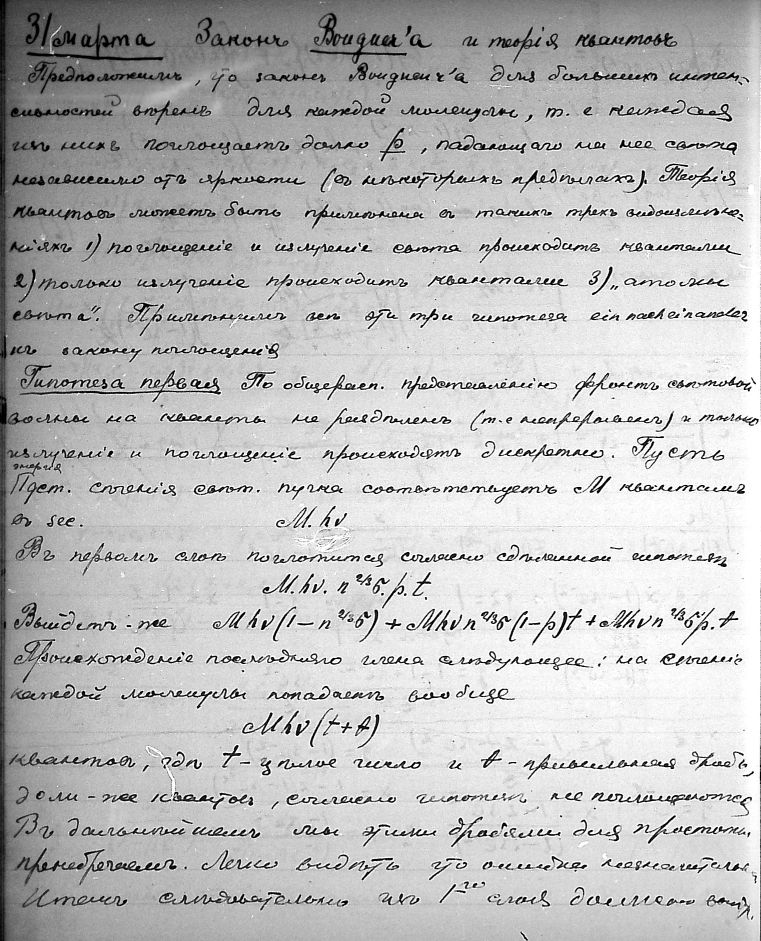 31 марта Законъ Bouguer'а и теорія квантовъ
Предположимъ, что законъ Bouguer'а для большихъ интен-
сивностей вѣренъ для каждой молекулы, т. е каждая
изъ нихъ поглощаетъ долю p, падающаго на нее свѣта
независимо отъ яркости (въ нѣкоторыхъ предѣлахъ). Теорія
квантовъ можетъ быть примѣнена въ такихъ трехъ видоизмѣне-
ніяхъ 1) поглощеніе и излученіе свѣта происходитъ квантами
2) только излученіе происходитъ квантами 3) „атомы
свѣта". Примѣнимъ всѣ эти три гипотезы ein nach einander
къ закону поглощенія
Гипотеза первая По общерасп. представленію фронтъ свѣтовой
волны на кванты не раздѣленъ (т. е непрерывенъ) и только
излученіе и поглощеніе происходятъ дискретно. Пусть
энергія
сѣченія свѣт. пучка соотвѣтствуетъ M квантамъ
въ sec. M.hν
Въ первомъ слоѣ поглотится согласно сдѣланной гипотезѣ
M.hν. n^2/3 σ. p. t.
Выйдетъ-же Mhν(1 – n^2/3 σ) + Mhν n^2/3 σ(1–p)t + Mhν n^2/3 σ p. t
Происхожденіе послѣдняго члена слѣдующее: на сѣченіе
каждой молекулы попадаетъ вообще
Mhν(t+t)
квантовъ, гдѣ t – цѣлое число и t – правильная дробь,
доли-же квантов, согласно гипотезѣ не поглощаются
Въ дальнѣйшемъ мы этими дробями для простоты
пренебрегаемъ. Легко видѣть что ошибка незначительна
Итакъ слѣдовательно изъ 1го слоя должно